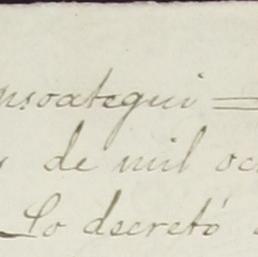 nsoategui =
de mil oc
Lo dscretó